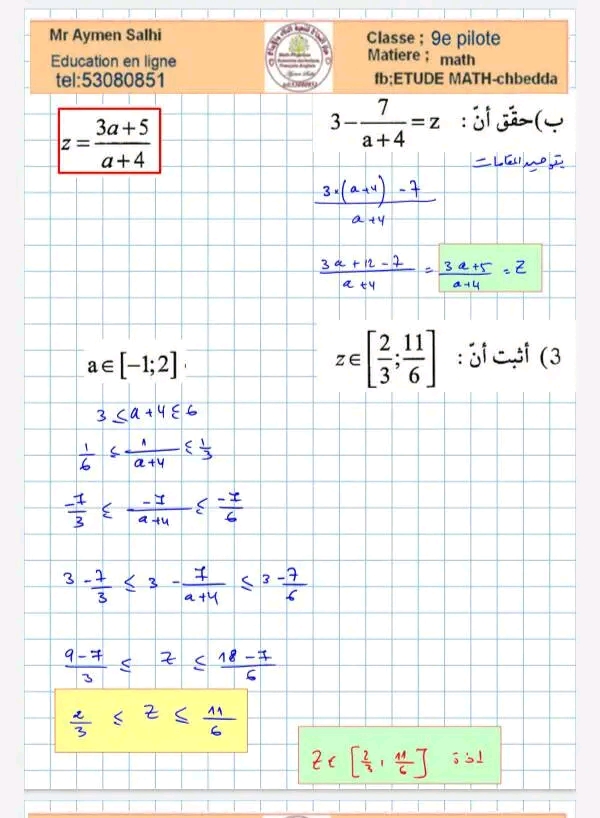 Mr Aymen Salhi
Education en ligne
tel:53080851
Classe ; 9e pilote
Matiere ; math
fb;ETUDE MATH-chbedda
z = (3a+5)/(a+4)
ب) حقّق أنّ : 3 - 7/(a+4) = z
بتوحيد المقامات
(3×(a+4) - 7)/(a+4)
(3a+12-7)/(a+4) = (3a+5)/(a+4) = z
3) أثبت أنّ : z∈[2/3;11/6]
a∈[-1;2]
3 ≤ a+4 ≤ 6
1/6 ≤ 1/(a+4) ≤ 1/3
-7/3 ≤ -7/(a+4) ≤ -7/6
3 - 7/3 ≤ 3 - 7/(a+4) ≤ 3 - 7/6
(9-7)/3 ≤ z ≤ (18-7)/6
2/3 ≤ z ≤ 11/6
اذن z∈[2/3, 11/6]